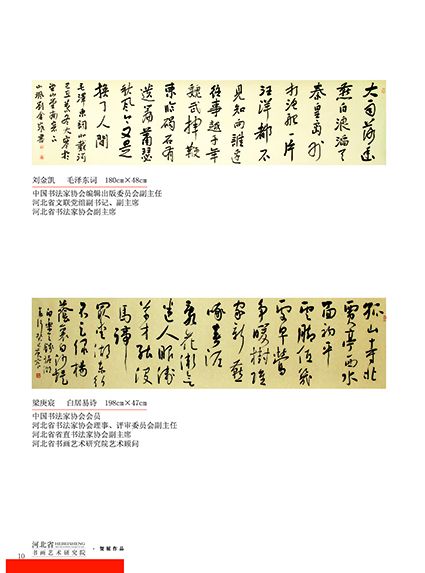 大雨落幽
燕白浪滔天
秦皇島外
打漁船一片
汪洋都不
見知向誰邊
往事越千年
魏武揮鞭
東臨碣石有
遺篇蕭瑟
秋風今又是
換了人間
刘金凯 毛泽东词 180cm×48cm
中国书法家协会编辑出版委员会副主任
河北省文联党组副书记、副主席
河北省书法家协会副主席
孤山寺北
賈亭西水
面初平
雲腳低幾
處早鶯
爭暖樹誰
家新燕
啄春泥
亂花漸欲
迷人眼淺
草才能沒
馬蹄
最愛湖東行
不足綠楊
陰裏白沙堤
梁庚宸 白居易诗 198cm×47cm
中国书法家协会会员
河北省书法家协会理事、评审委员会副主任
河北省省直书法家协会副主席
河北省书画艺术研究院艺术顾问
10
河北省HEBEISHENG
书画艺术研究院
·贺展作品